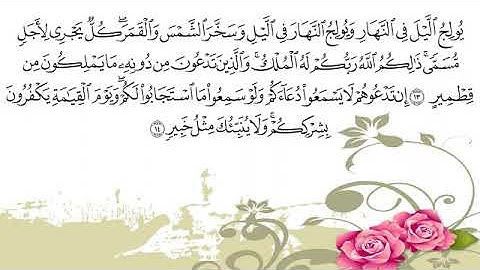 يُولِجُ ٱلَّيۡلَ فِي ٱلنَّهَارِ وَيُولِجُ ٱلنَّهَارَ فِي ٱلَّيۡلِ وَسَخَّرَ ٱلشَّمۡسَ وَٱلۡقَمَرَۖ كُلّٞ يَجۡرِي لِأَجَلٖ
مُّسَمّٗىۚ ذَٰلِكُمُ ٱللَّهُ رَبُّكُمۡ لَهُ ٱلۡمُلۡكُۚ وَٱلَّذِينَ تَدۡعُونَ مِن دُونِهِۦ مَا يَمۡلِكُونَ مِن
قِطۡمِيرٍ ١٣ إِن تَدۡعُوهُمۡ لَا يَسۡمَعُواْ دُعَآءَكُمۡ وَلَوۡ سَمِعُواْ مَا ٱسۡتَجَابُواْ لَكُمۡۖ وَيَوۡمَ ٱلۡقِيَٰمَةِ يَكۡفُرُونَ
بِشِرۡكِكُمۡۚ وَلَا يُنَبِّئُكَ مِثۡلُ خَبِيرٖ ١٤